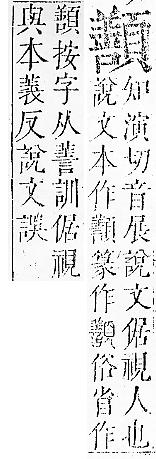 知演切音展說文倨視人也
說文本作篆作俗省作
䫮按字从譱訓倨視
與本義反說文誤